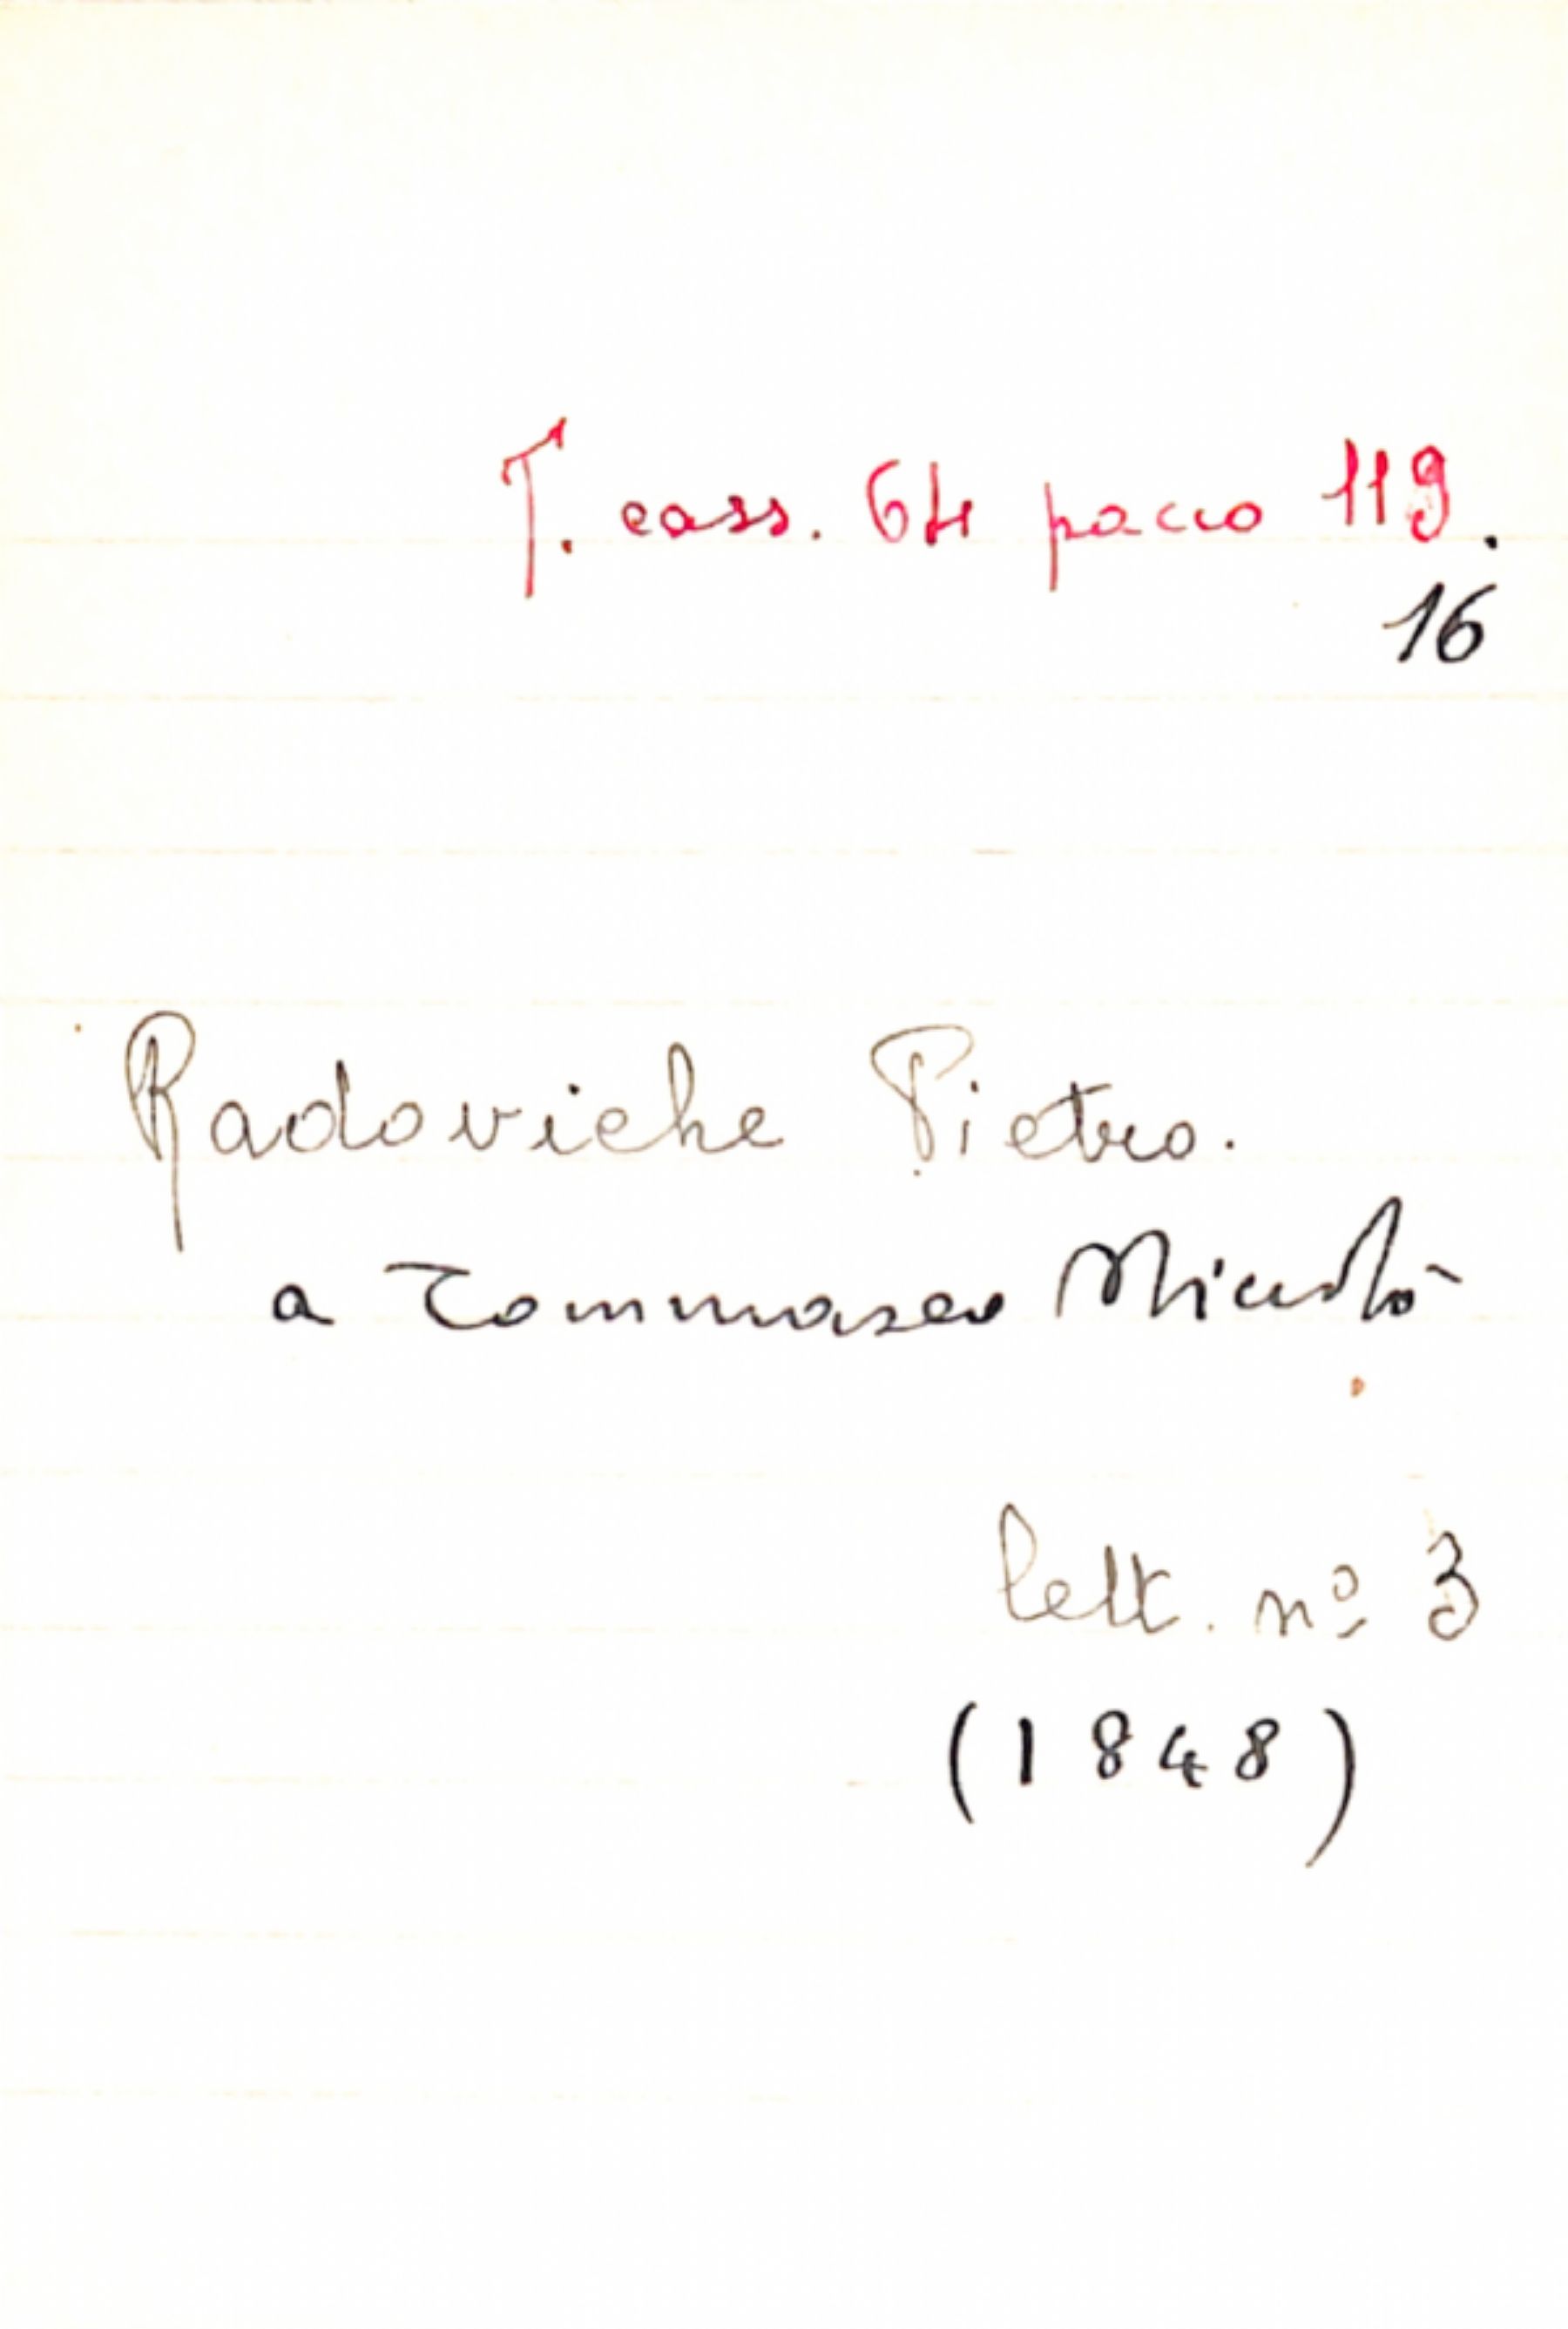 T. cass. 64 pacco 119.
16
Radoviche Pietro.
a Tommaseo Niccolò
lett. nº 3
(1848)